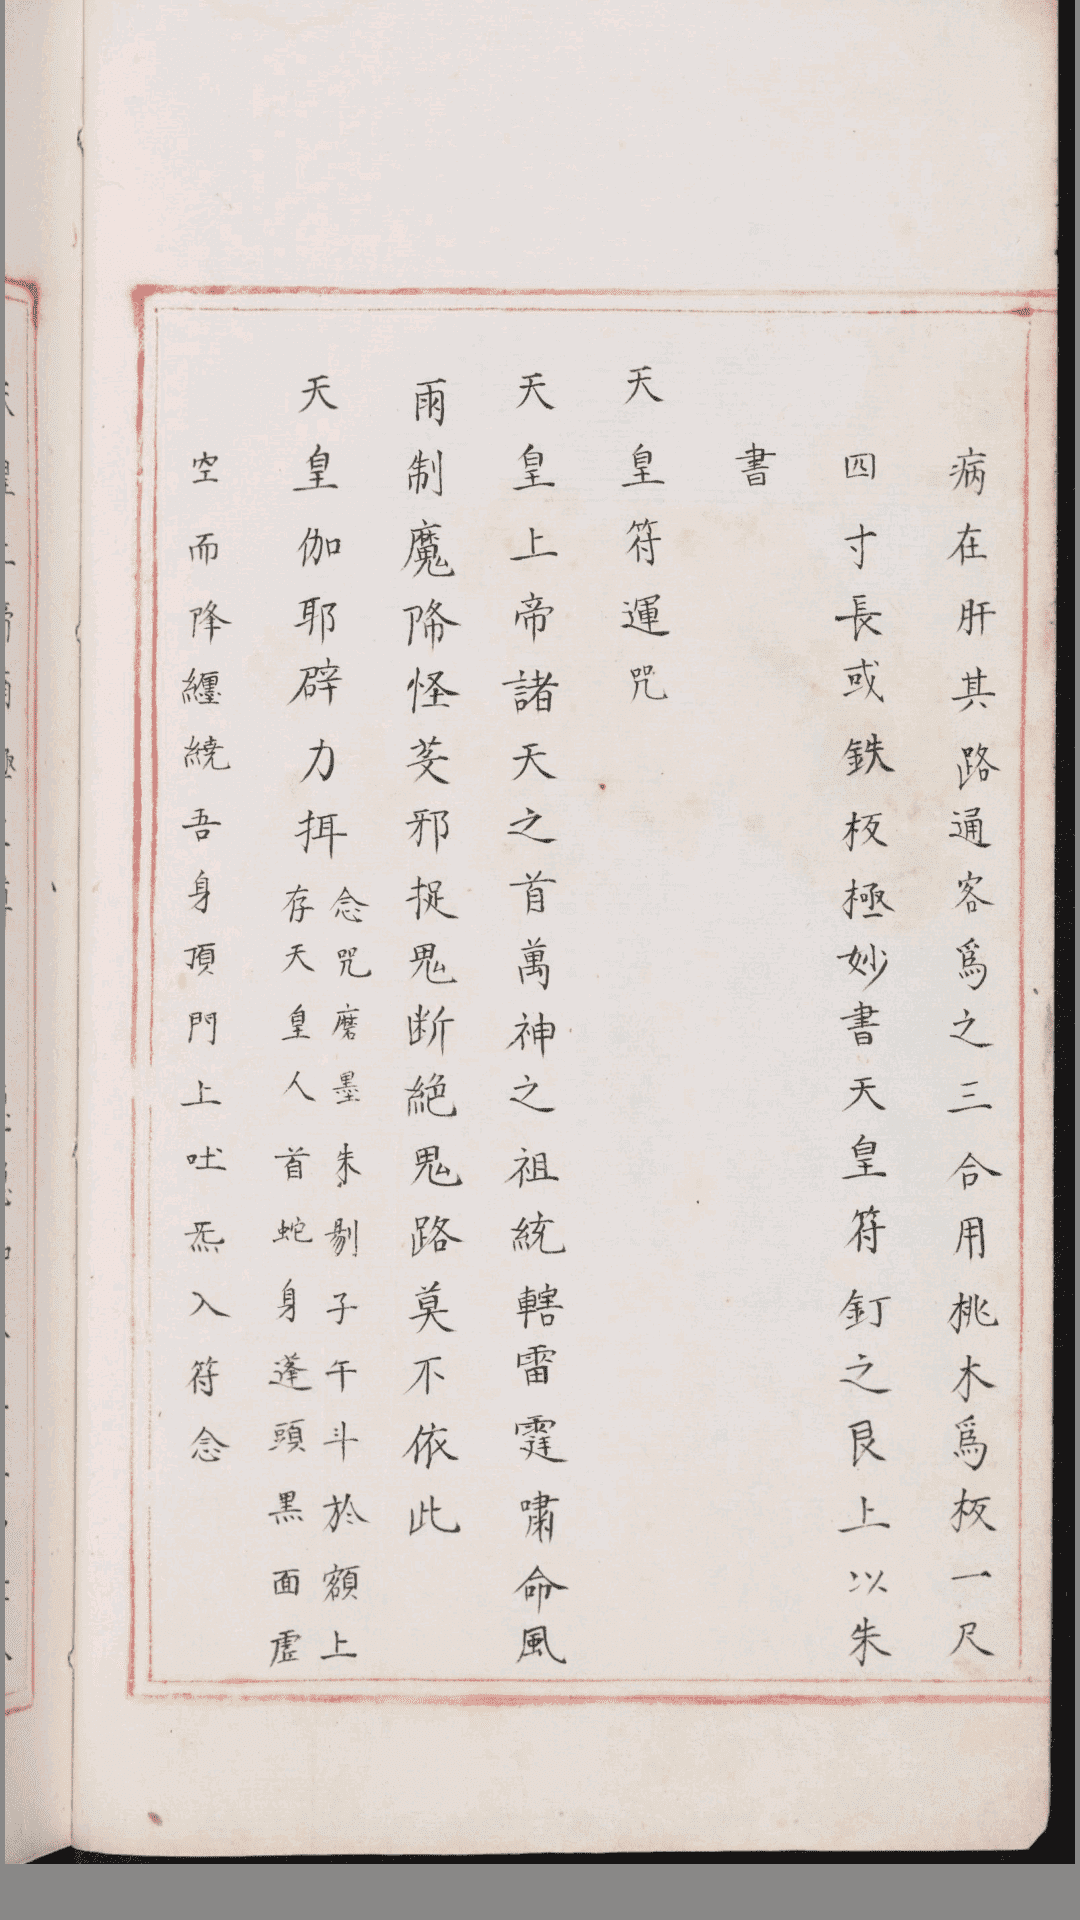 病在肝其路通客爲之三合用桃木爲板一尺
四寸長或鉄板極妙書天皇符釘之艮上以朱
書
天皇符運咒
天皇上帝諸天之首萬神之祖統轄雷霆嘯命風
雨制魔降怪芟邪捉鬼断絶鬼路莫不依此
天皇伽耶辟力揖
念咒磨墨朱剔子午斗於額上
存天皇人首蛇身蓬頭黒面虛
空而降纒繞吾身頂門上吐炁入符念